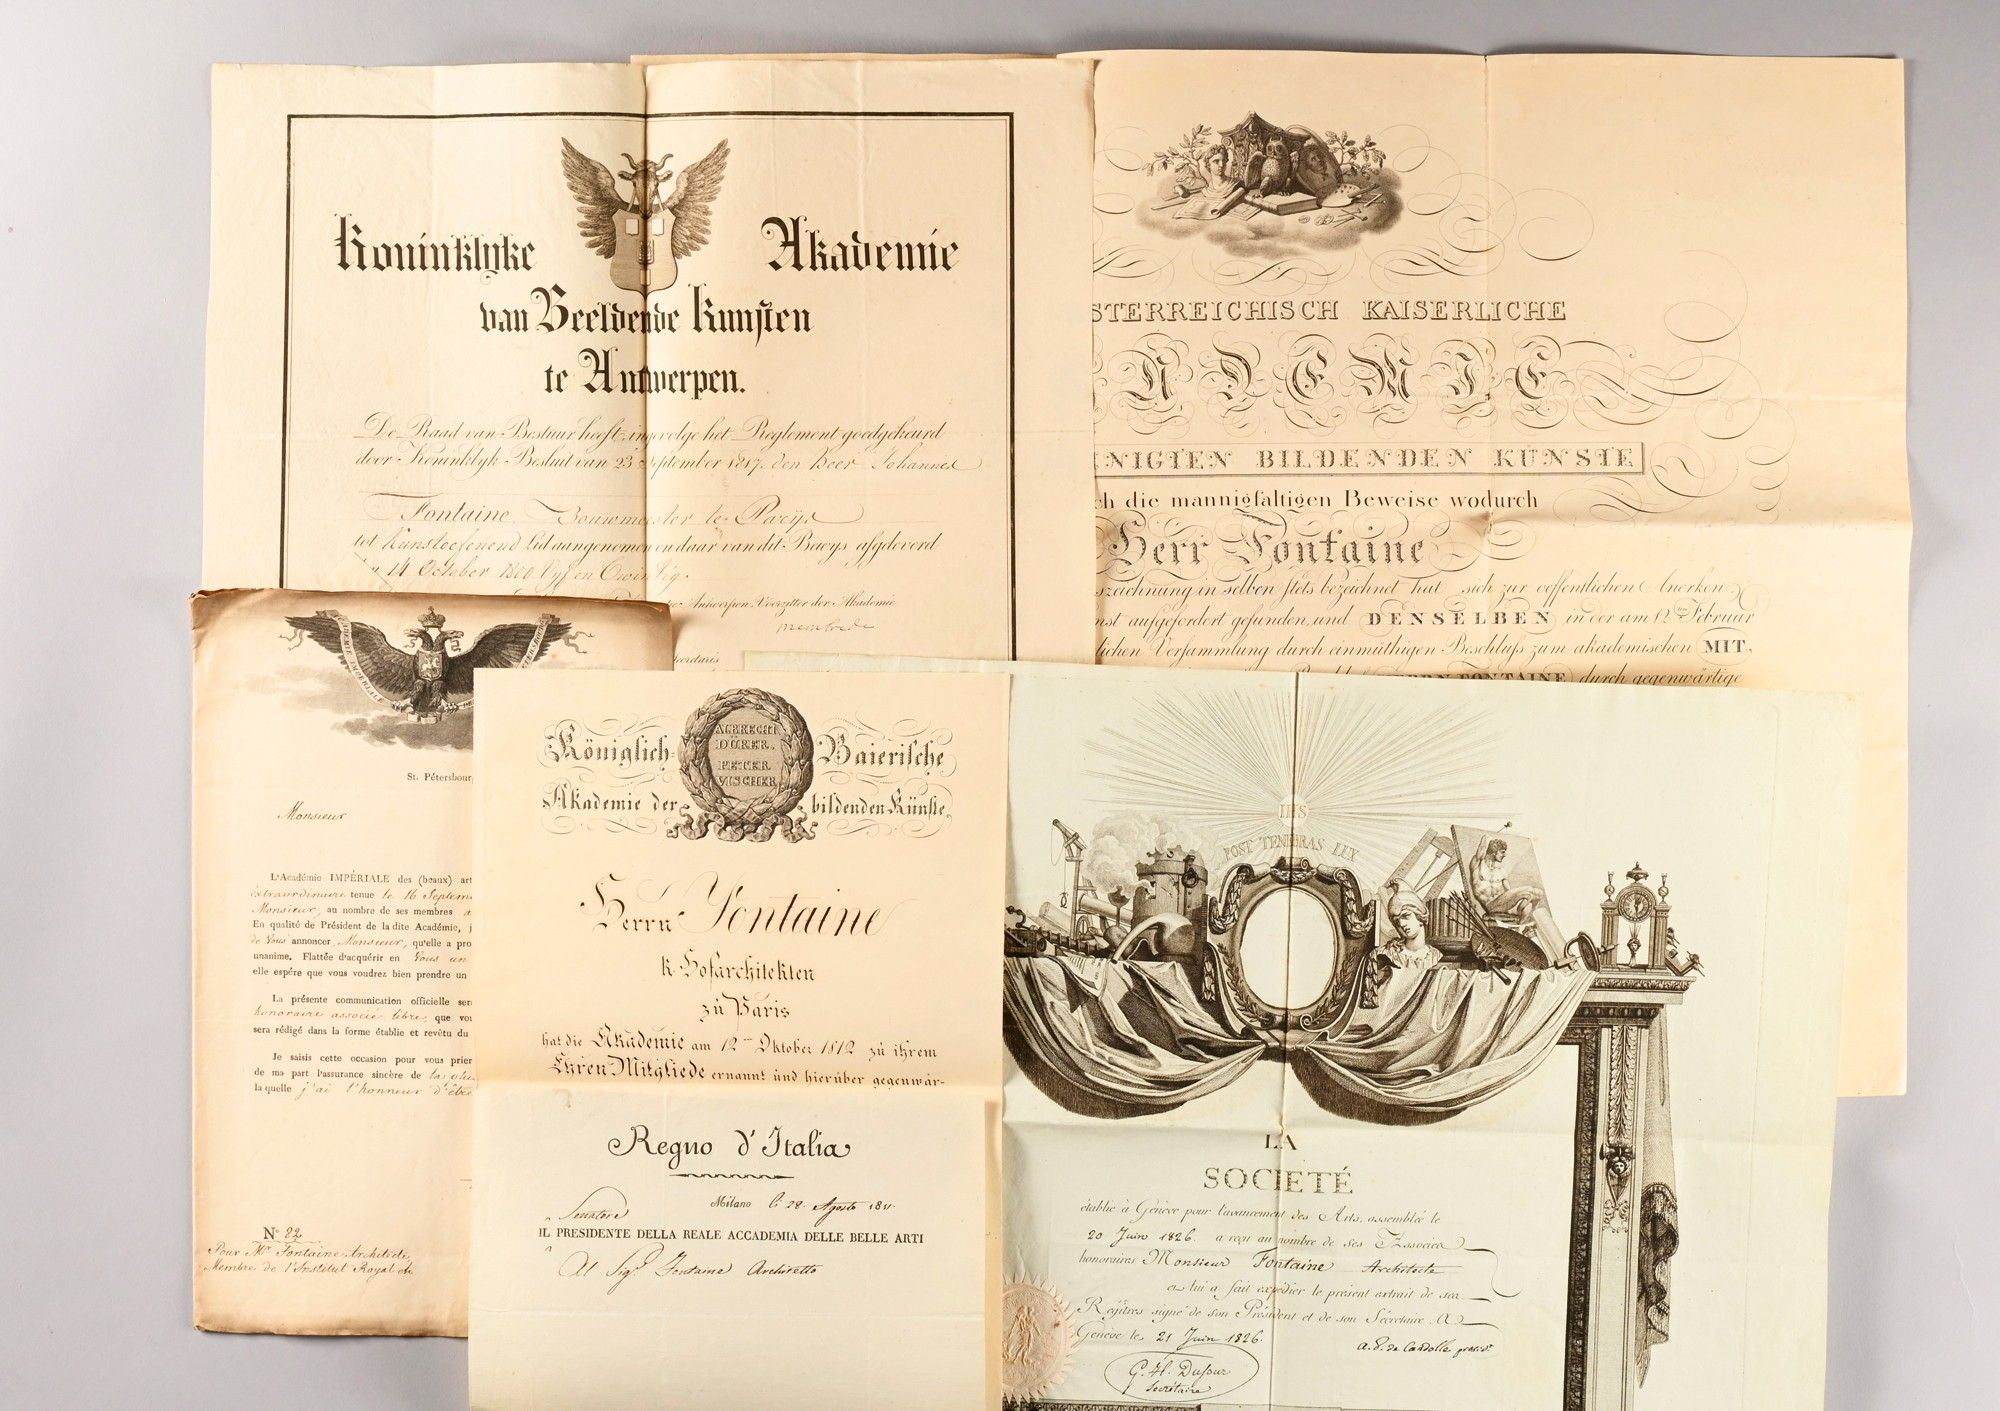 Koninklijke Akademie
van Beeldende Kunsten
te Antwerpen.
De Raad van Bestuur heeft, ingevolge het Reglement goedgekeurd
door Koninklijk Besluit van 23 September 1817, den Heer Johannes
Fontaine, Bouwmeester te Parijs
tot Kunstoefenend Lid aangenomen en daar van dit Bewys afgeleverd
14 October 1800 vyf en twintig.
Antwerpen Voorzitter der Akademie
membrede
STERREICHISCH KAISERLICHE
NDEMIE
NIGTEN BILDENDEN KÜNSTE
ch die mannigfaltigen Beweise wodurch
Herr Fontaine
szeichnung in selben stets bezeichnet hat sich zur oeffentlichen Anerken
nst aufgefordert gefunden, und DENSELBEN in der am 12ten Februar
lichen Versammlung durch einmüthigen Beschluss zum akademischen MIT,
RN FONTAINE durch gegenwärtige
ACADEMIE IMPERIALE
St. Pétersbour
Monsieur
L'Académie IMPÉRIALE des (beaux) art
extraordinaire tenue le 16 Septem
Monsieur, au nombre de ses membres
En qualité de Président de la dite Académie, j
de Vous annoncer, Monsieur, qu'elle a pro
unanime. Flattée d'acquérir en Vous un
elle espére que vous voudrez bien prendre un
La présente communication officielle ser
honoraire associé libre, que vou
sera rédigé dans la forme établie et revêtu du
Je saisis cette occasion pour vous prier
de ma part l'assurance sincère de la
la quelle j'ai l'honneur d'être
N° 22
Pour Mr Fontaine Architecte,
Membre de l'Institut Royal de
Königlich- Baierische
Akademie der bildenden Künste,
ALBRECHT
DÜRER.
PETER
VISCHER
Herrn Fontaine
k. Hofarchitekten
zu Paris
hat die Akademie am 12ten Oktober 1812 zu ihrem
Ehren Mitgliede ernannt und hierüber gegenwär-
Regno d'Italia
Milano li 28. Agosto 1811.
Senatore
IL PRESIDENTE DELLA REALE ACCADEMIA DELLE BELLE ARTI
Al Sigr. Fontaine Architetto
IHS
POST TENEBRAS LUX
LA
SOCIETÉ
établie à Genève pour l'avancement des Arts, assemblée le
20 Juin 1826. a reçu au nombre de ses Associés
honoraires Monsieur Fontaine Architecte
et lui a fait expédier le présent extrait de ses
Régîtres signé de son Président et de son Sécrétaire. A
Genève le 21 Juin 1826.
A. P. de Candolle présidt.
G. H. Dufour
secrétaire